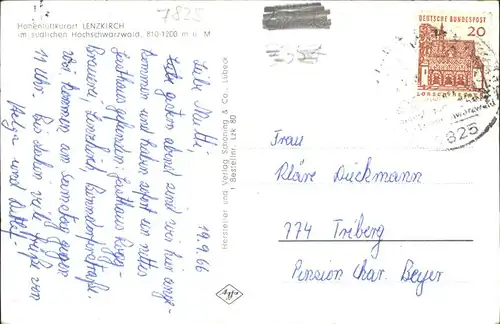 7825
Höhenluftkurort LENZKIRCH
im südlichen Hochschwarzwald, 810-1200 m ü. M
DEUTSCHE BUNDESPOST
20
LORSCH/HESSEN
7825
19.9.66
Liebe Mutti
gestern abend sind wir hier ange-
kommen und haben sofort ein nettes
Gasthaus gefunden. Gasthaus
Brauerei, Lenzkirch, Bonndorferstraße.
Wir kommen am Samstag gegen
11 Uhr. Bis dahin viele Grüße von
Helga und Detlef.
Hersteller und Verlag Schöning & Co., Lübeck
1 Bestellnr. Lzk 80
Frau
Kläre Dückmann
774 Triberg
Pension Char. Beyer